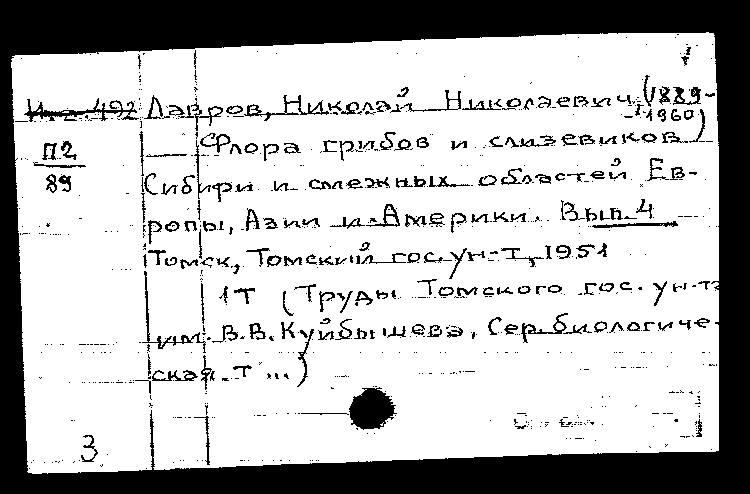 И.2.492 Лавров, Николай Николаевич, (1889-
-1960)
П2
89
Флора грибов и слизевиков
Сибири и смежных областей Ев-
ропы, Азии и Америки. Вып. 4
Томск, Томский гос. ун-т, 1951
1т (Труды Томского гос. ун-та
им. В.В. Куйбышева, Сер. биологиче-
ская. т ...)
3